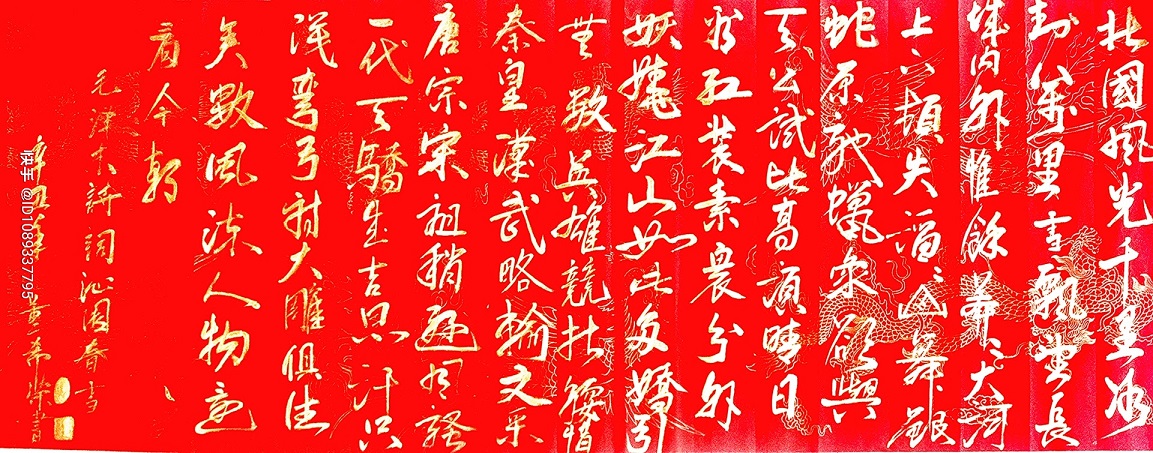 北國風光千里冰
封萬里雪飄望長
城內外惟餘莽〻大河
上下頓失滔〻山舞銀
蛇原馳蠟象欲與
天公試比高須晴日
看紅裝素裹分外
妖嬈江山如此多嬌引
無數英雄競折腰惜
秦皇漢武略輸文采
唐宗宋祖稍遜風騷
一代天驕成吉思汗只
識彎弓射大雕俱往
矣數風流人物還
看今朝
毛澤東詩詞沁園春雪
辛丑年 董希書
快手 @ID1089337795